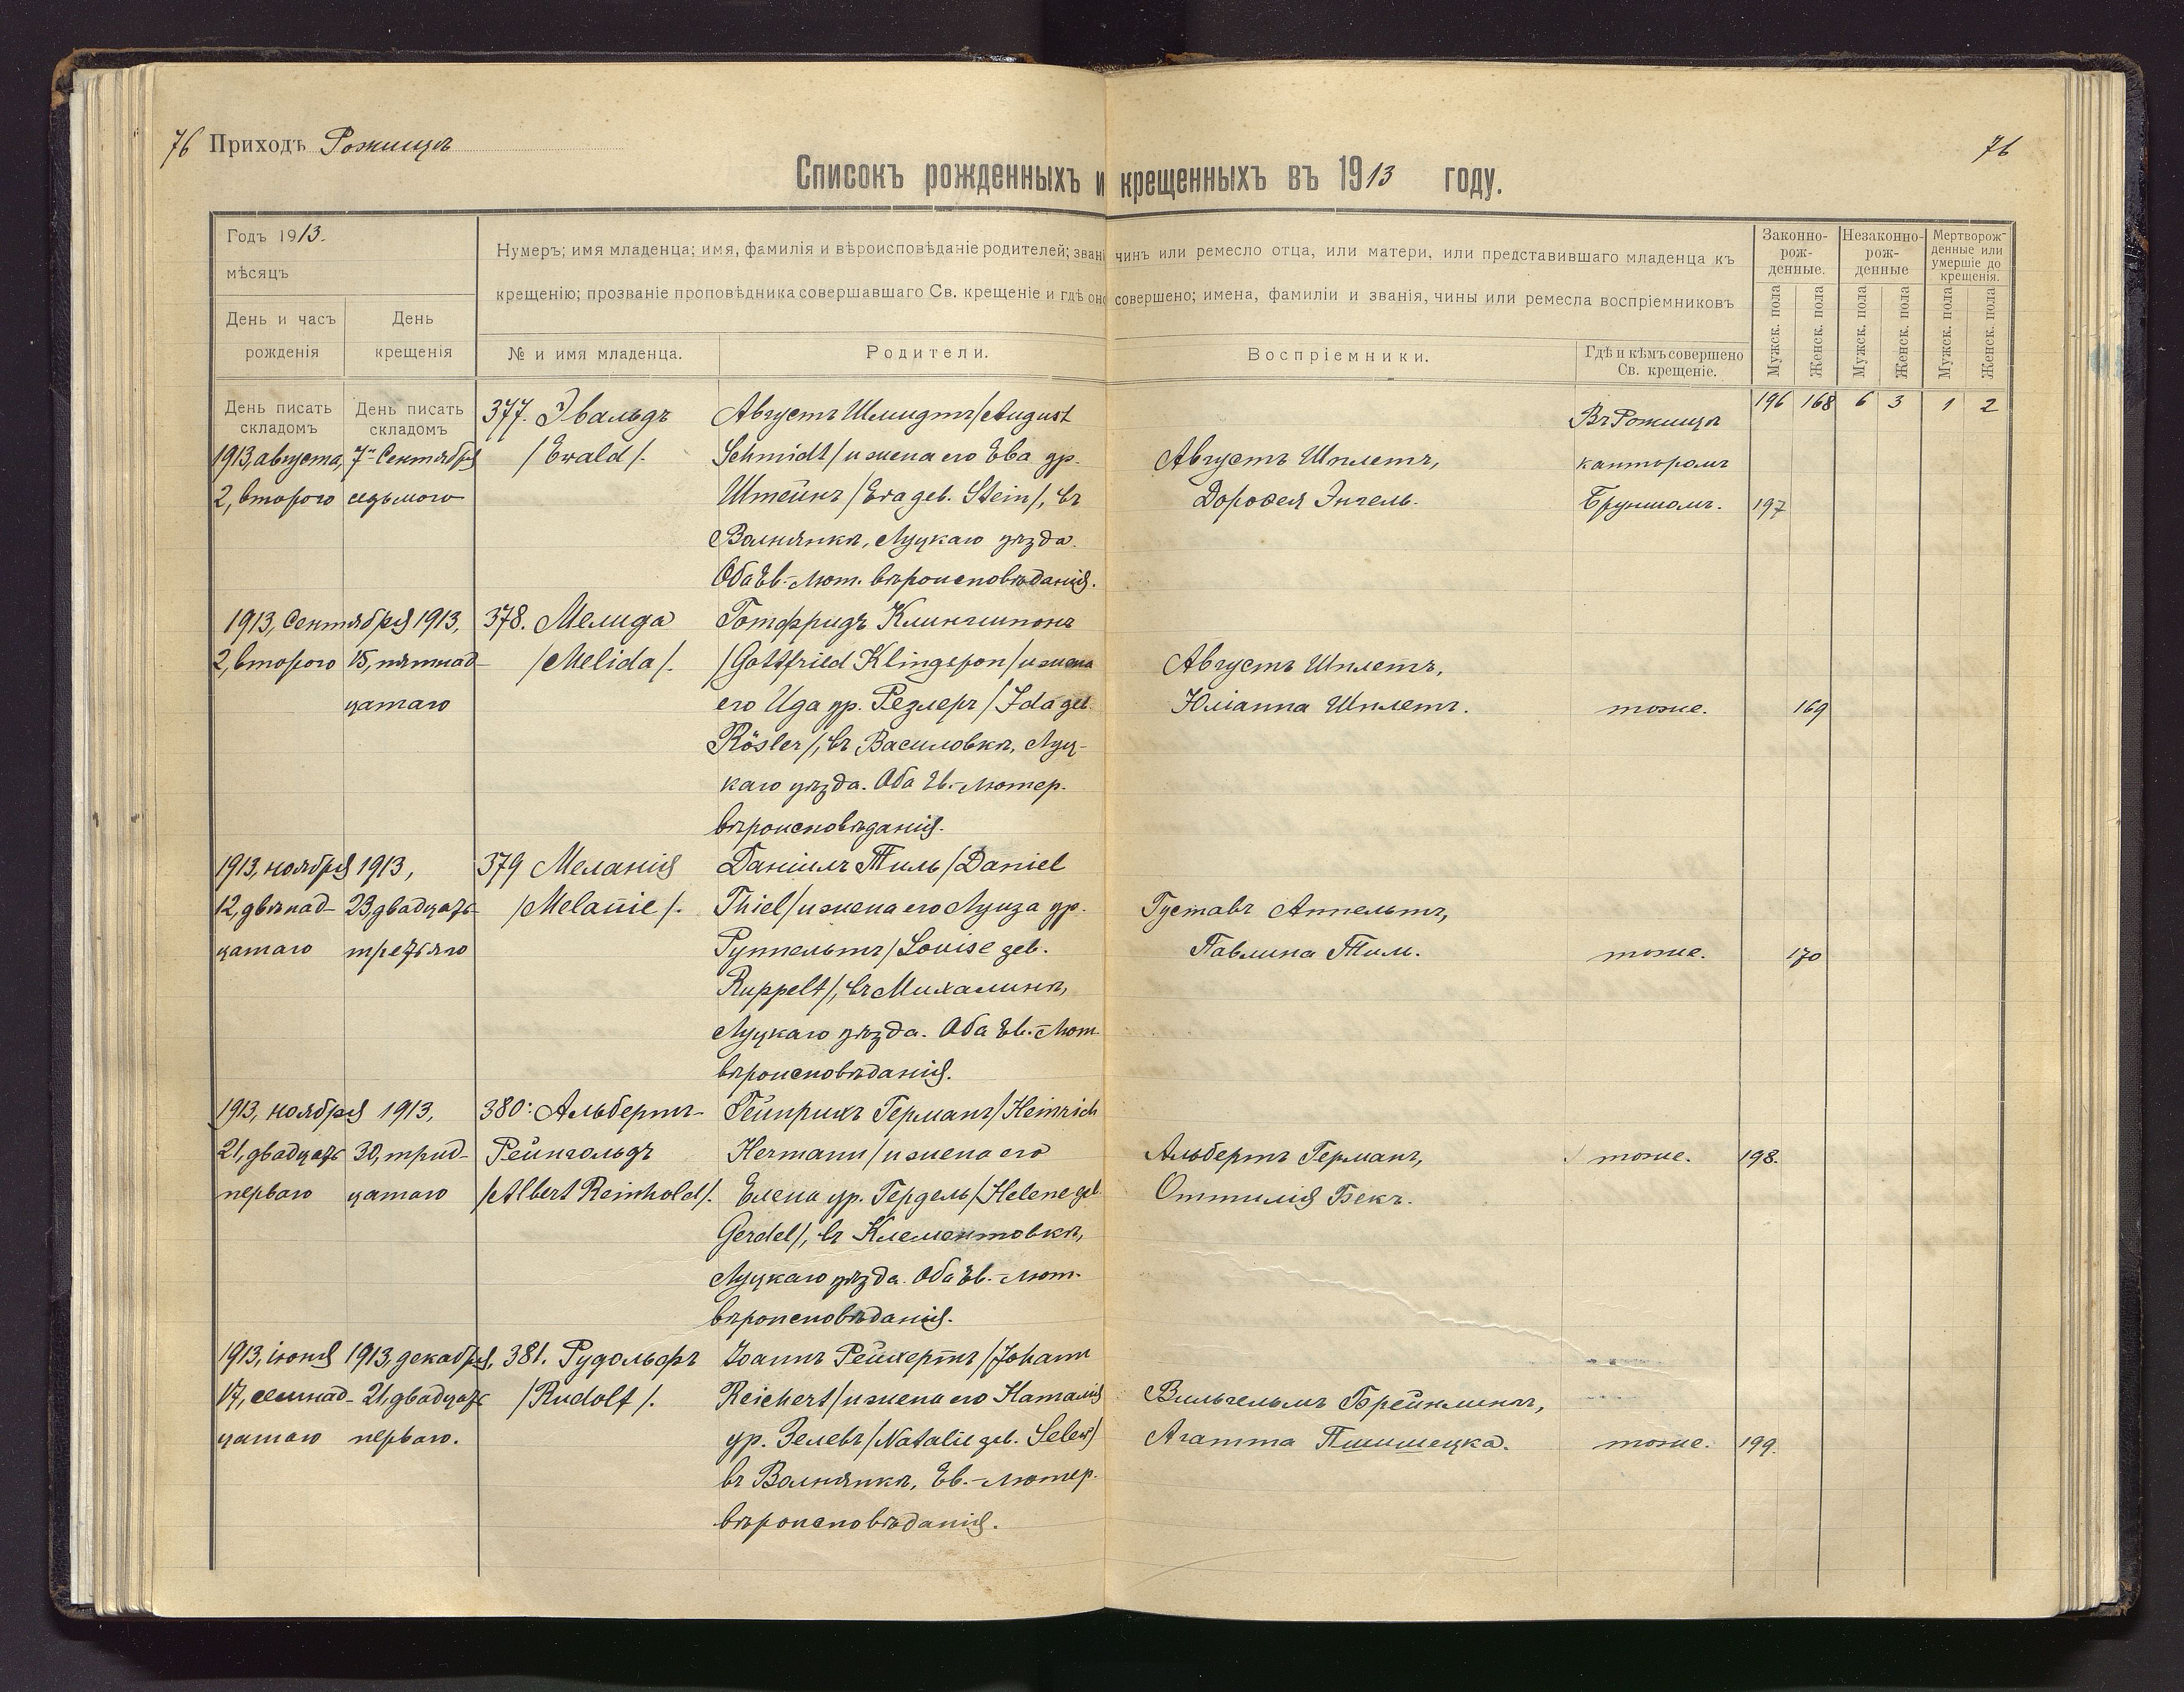 76 Приходъ Рожище
76
Списокъ рожденныхъ и крещенныхъ въ 1913 году.
Годъ 1913.
мѣсяцъ
День и часъ рожденія
День крещенія
Нумеръ; имя младенца; имя, фамилія и вѣроисповѣданіе родителей; звані чинъ или ремесло отца, или матери, или представившаго младенца къ
крещенію; прозваніе проповѣдника совершавшаго Св. крещеніе и гдѣ оно совершено; имена, фамиліи и званія, чины или ремесла воспріемниковъ
№ и имя младенца.
Родители.
Воспріемники.
Гдѣ и кѣмъ совершено
Св. крещеніе.
Законно-
рож-
денные.
Незаконно-
рож-
денные
Мертворож-
денные или
умершіе до
крещенія.
Мужск. пола
Женск. пола
Мужск. пола
Женск. пола
Мужск. пола
Женск. пола
День писать
складомъ
День писать
складомъ
196 168 6 3 1 2
1913, августа,
2, второго
7-Сентября
седьмого
377. Эвальдъ
/Ewald/.
Августъ Шмидтъ/August
Schmidt/ и жена его Ева ур.
Штейнъ/Eva geb. Stein/, въ
Волнянкѣ, Луцкаго уѣзда.
Оба Ев.-Лют. вѣроисповѣданія.
Августъ Шплетъ,
Доровея Энгель.
Въ Рожищѣ
канторомъ
Груншомъ.
197
1913, Сентября
2, второго
1913,
15, пятнад-
цатаго
378. Мелида
/Melida/.
Готфридъ Клингшпонъ
/Gottfried Klingspon/ и жена
его Ида ур. Резлеръ/Ida geb.
Rösler/, въ Василовкѣ, Луц-
каго уѣзда. Оба Ев.-Лютер.
вѣроисповѣданія.
Августъ Шплетъ,
Юліанна Шплетъ.
тоже.
169
1913, ноября
12, двѣнад-
цатаго
1913,
23, двадцать
третьяго
379 Меланія
/Melanie/.
Даніилъ Тиль/Daniel
Thiel/ и жена его Луиза ур.
Руппельтъ/Louise geb.
Ruppelt/, въ Михалинѣ,
Луцкаго уѣзда. Оба Ев.-Лют.
вѣроисповѣданія.
Густавъ Аппельтъ,
Павлина Тимъ.
тоже.
170
1913, ноября
21, двадцать
перваго
1913,
30, трид-
цатаго
380. Альбертъ-
Рейнгольдъ
/Albert Reinhold/.
Гейнрихъ Германъ/Heinrich
Hermann/ и жена его
Елена ур. Гердель/Helene geb.
Gerdel/, въ Клементовкѣ,
Луцкаго уѣзда. Оба Ев.-Лют.
вѣроисповѣданія.
Альбертъ Германъ,
Оттилія Бекъ.
тоже.
198.
1913, іюня
17, семнад-
цатаго
1913, декабря,
21, двадцать
перваго.
381. Рудольфъ
/Rudolf/.
Іоаннъ Рейхертъ/Johann
Reichert/ и жена его Наталія
ур. Зелевъ/Natalie geb. Selew/
въ Волнянкѣ, Ев.-Лютер.
вѣроисповѣданія.
Вильгельмъ Брейклингъ,
Агатта Пшишецка.
тоже.
199.